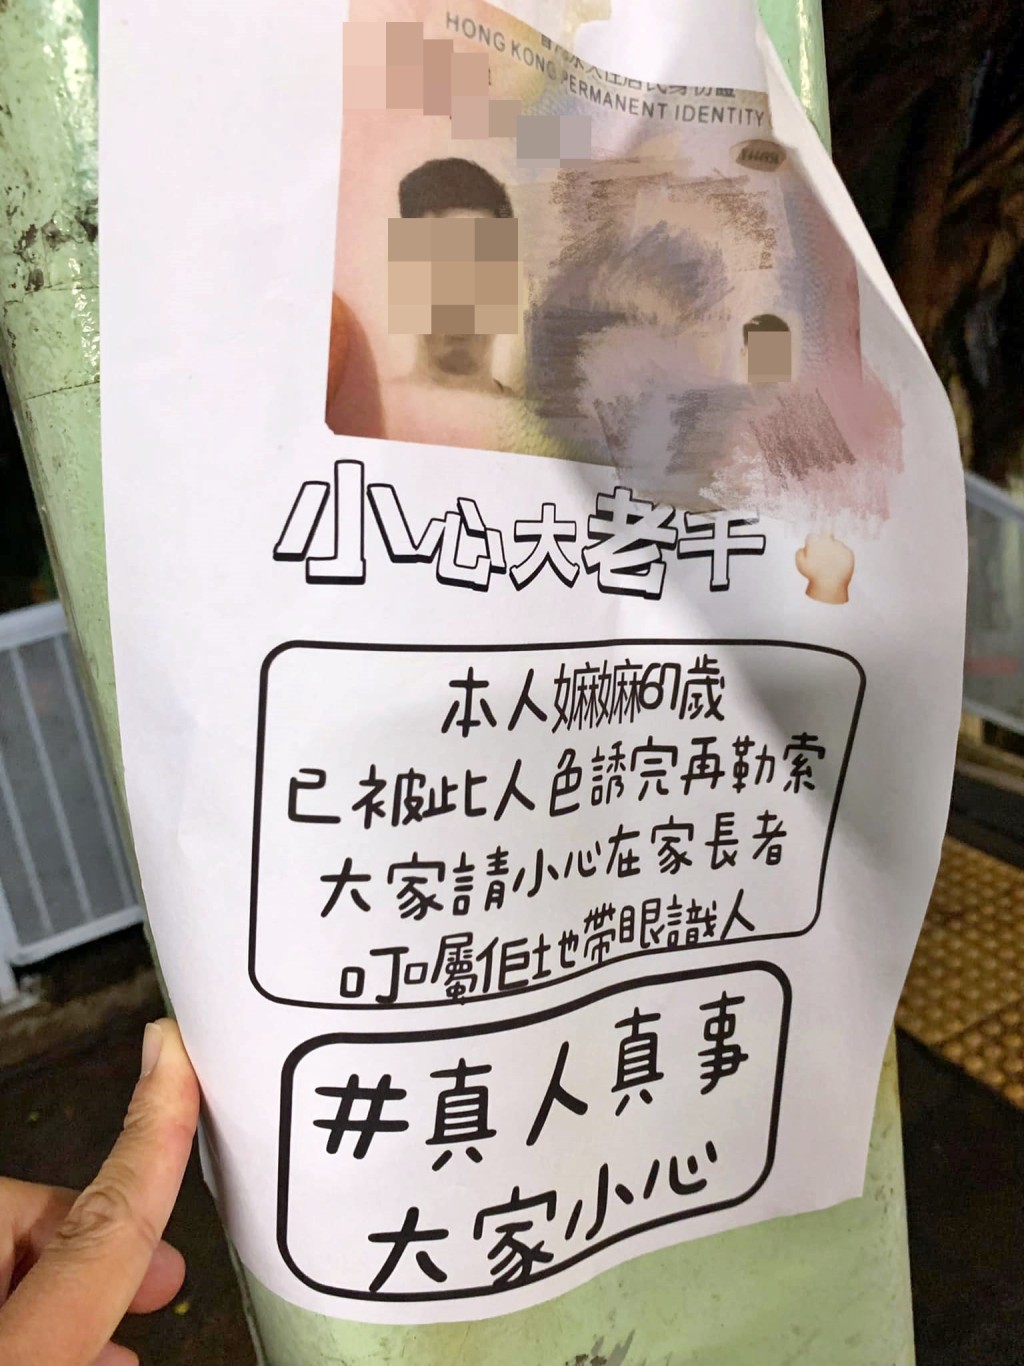 HONG KONG PERMANENT IDENTITY
小心大老千
本人嫲嫲67歲
已被此人色誘完再勒索
大家請小心在家長者
叮囑佢地帶眼識人
#真人真事
大家小心